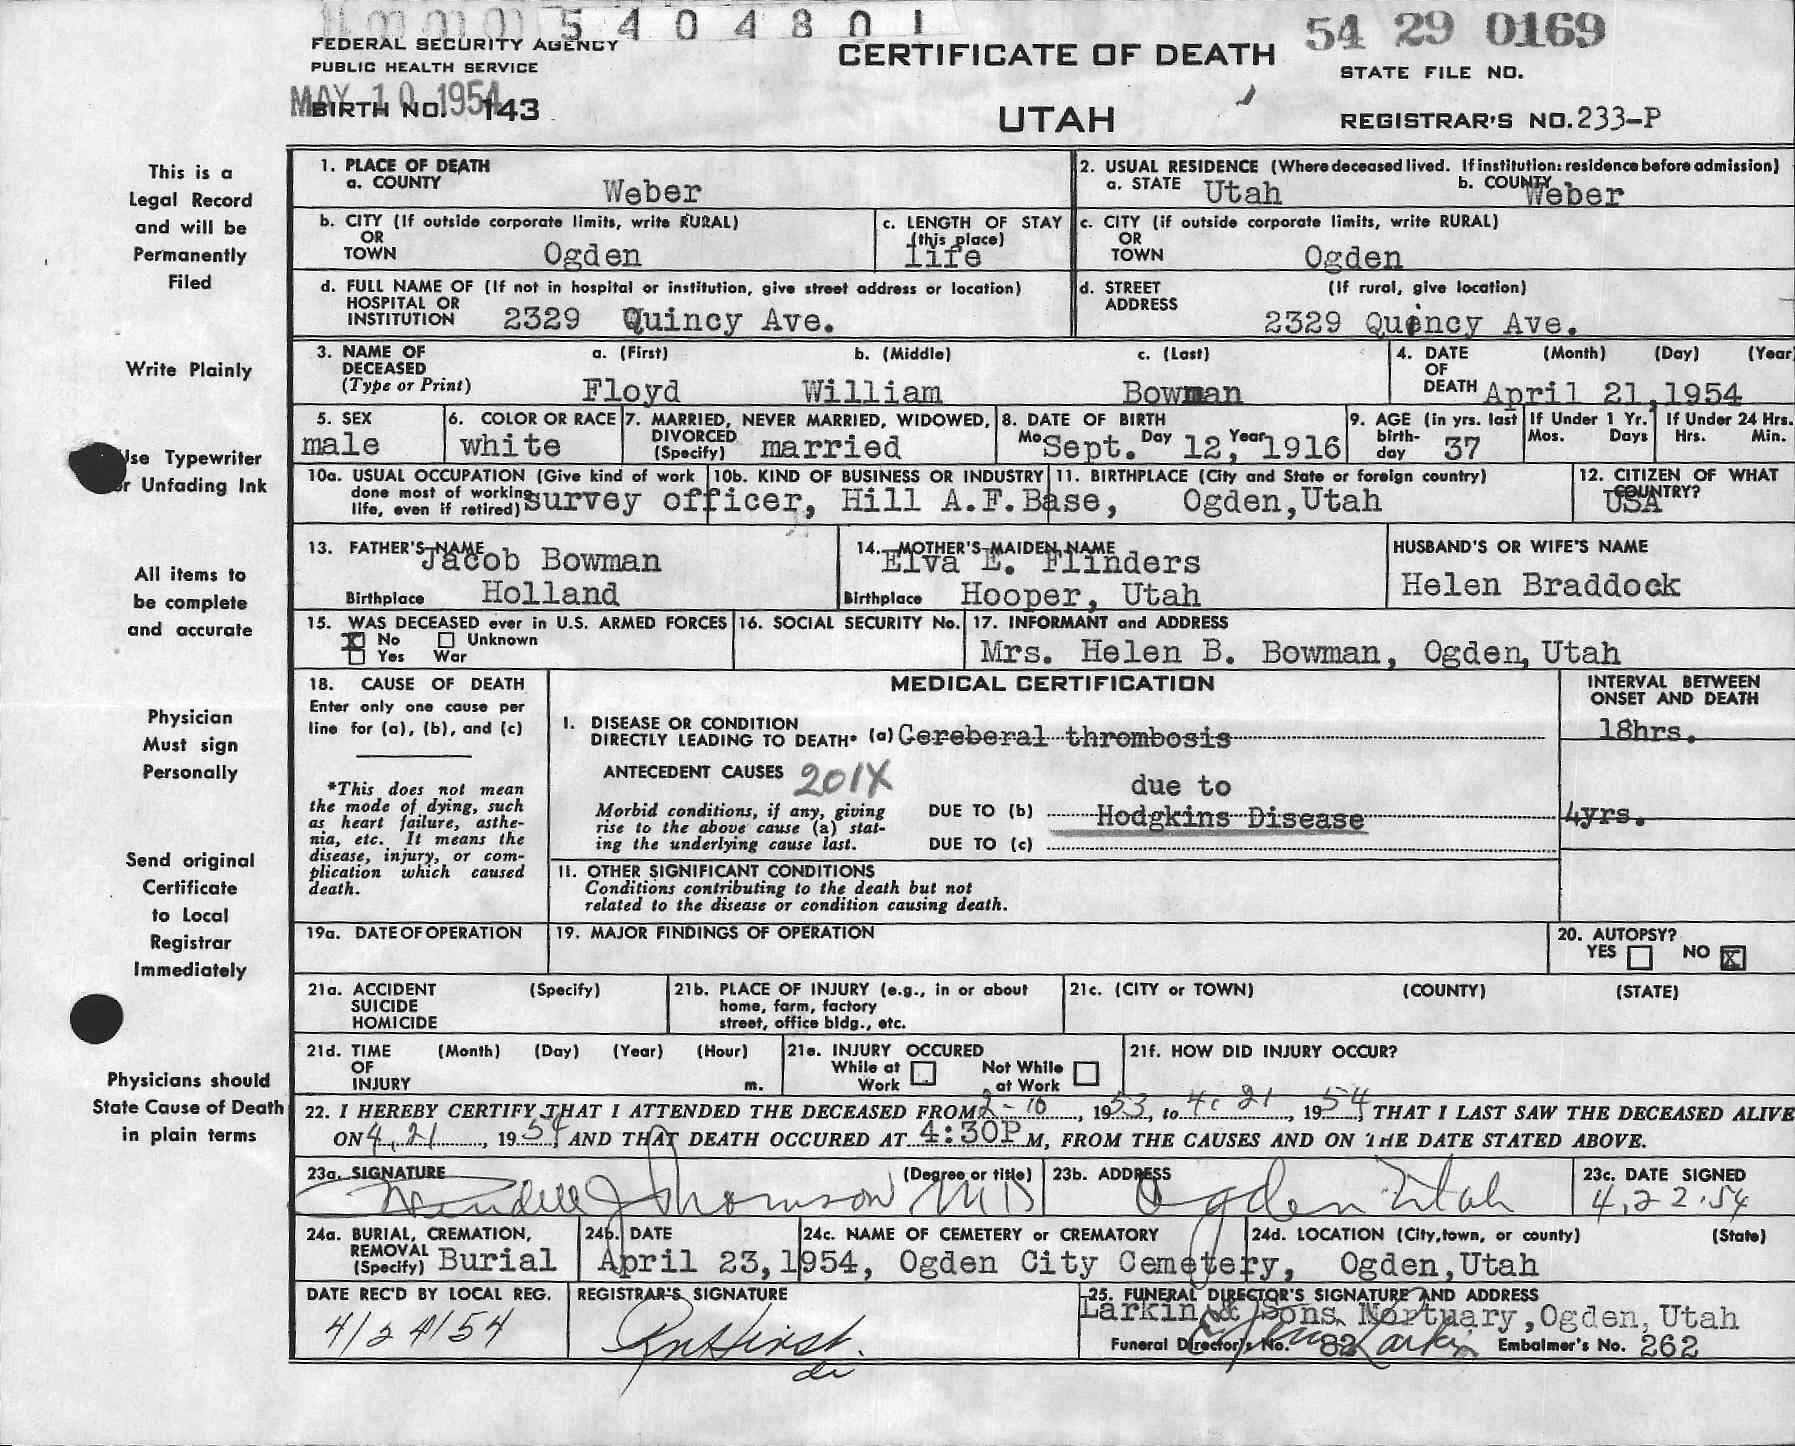 5404801
54 29 0169
FEDERAL SECURITY AGENCY
PUBLIC HEALTH SERVICE
CERTIFICATE OF DEATH
STATE FILE NO.
MAY 10 1954
BIRTH NO. 143
UTAH
REGISTRAR'S NO. 233-P
This is a
Legal Record
and will be
Permanently
Filed
Write Plainly
Use Typewriter
or Unfading Ink
All items to
be complete
and accurate
Physician
Must sign
Personally
Send original
Certificate
to Local
Registrar
Immediately
Physicians should
State Cause of Death
in plain terms
1. PLACE OF DEATH
a. COUNTY Weber
2. USUAL RESIDENCE (Where deceased lived. If institution: residence before admission)
a. STATE Utah b. COUNTY Weber
b. CITY (If outside corporate limits, write RURAL)
OR
TOWN Ogden
c. LENGTH OF STAY
(this place)
life
c. CITY (if outside corporate limits, write RURAL)
OR
TOWN Ogden
d. FULL NAME OF (If not in hospital or institution, give street address or location)
HOSPITAL OR
INSTITUTION 2329 Quincy Ave.
d. STREET (If rural, give location)
ADDRESS
2329 Quincy Ave.
3. NAME OF a. (First) b. (Middle) c. (Last)
DECEASED
(Type or Print) Floyd William Bowman
4. DATE (Month) (Day) (Year
OF
DEATH April 21, 1954
5. SEX
male
6. COLOR OR RACE
white
7. MARRIED, NEVER MARRIED, WIDOWED,
DIVORCED
(Specify) married
8. DATE OF BIRTH
Mo Sept. Day 12, Year 1916
9. AGE (in yrs. last
birth-
day 37
If Under 1 Yr.
Mos. Days
If Under 24 Hrs.
Hrs. Min.
10a. USUAL OCCUPATION (Give kind of work
done most of working
life, even if retired) survey officer, Hill A.F.Base,
10b. KIND OF BUSINESS OR INDUSTRY
11. BIRTHPLACE (City and State or foreign country)
Ogden, Utah
12. CITIZEN OF WHAT
COUNTRY?
USA
13. FATHER'S NAME
Jacob Bowman
Birthplace Holland
14. MOTHER'S MAIDEN NAME
Elva E. Flinders
Birthplace Hooper, Utah
HUSBAND'S OR WIFE'S NAME
Helen Braddock
15. WAS DECEASED ever in U.S. ARMED FORCES
X No Unknown
Yes War
16. SOCIAL SECURITY No.
17. INFORMANT and ADDRESS
Mrs. Helen B. Bowman, Ogden, Utah
18. CAUSE OF DEATH
Enter only one cause per
line for (a), (b), and (c)
*This does not mean
the mode of dying, such
as heart failure, asthe-
nia, etc. It means the
disease, injury, or com-
plication which caused
death.
MEDICAL CERTIFICATION
INTERVAL BETWEEN
ONSET AND DEATH
I. DISEASE OR CONDITION
DIRECTLY LEADING TO DEATH* (a) Cereberal thrombosis
18hrs.
ANTECEDENT CAUSES 201X
due to
Morbid conditions, if any, giving
rise to the above cause (a) stat-
ing the underlying cause last.
DUE TO (b) Hodgkins Disease
4yrs.
DUE TO (c)
II. OTHER SIGNIFICANT CONDITIONS
Conditions contributing to the death but not
related to the disease or condition causing death.
19a. DATE OF OPERATION
19. MAJOR FINDINGS OF OPERATION
20. AUTOPSY?
YES NO X
21a. ACCIDENT (Specify)
SUICIDE
HOMICIDE
21b. PLACE OF INJURY (e.g., in or about
home, farm, factory
street, office bldg., etc.
21c. (CITY or TOWN) (COUNTY) (STATE)
21d. TIME (Month) (Day) (Year) (Hour)
OF
INJURY m.
21e. INJURY OCCURED
While at Work Not While at Work
21f. HOW DID INJURY OCCUR?
22. I HEREBY CERTIFY THAT I ATTENDED THE DECEASED FROM 2-10, 1953, to 4. 21, 1954, THAT I LAST SAW THE DECEASED ALIVE
ON 4, 21, 1954, AND THAT DEATH OCCURED AT 4:30P M, FROM THE CAUSES AND ON THE DATE STATED ABOVE.
23a. SIGNATURE (Degree or title)
Wendell J Thomson MD
23b. ADDRESS
Ogden Utah
23c. DATE SIGNED
4,22.54
24a. BURIAL, CREMATION,
REMOVAL
(Specify) Burial
24b. DATE
April 23, 1954,
24c. NAME OF CEMETERY or CREMATORY
Ogden City Cemetery,
24d. LOCATION (City, town, or county) (State)
Ogden, Utah
DATE REC'D BY LOCAL REG.
4/24/54
REGISTRAR'S SIGNATURE
25. FUNERAL DIRECTOR'S SIGNATURE AND ADDRESS
Larkin & Sons Mortuary, Ogden, Utah
Funeral Director's No. 82 Embalmer's No. 262